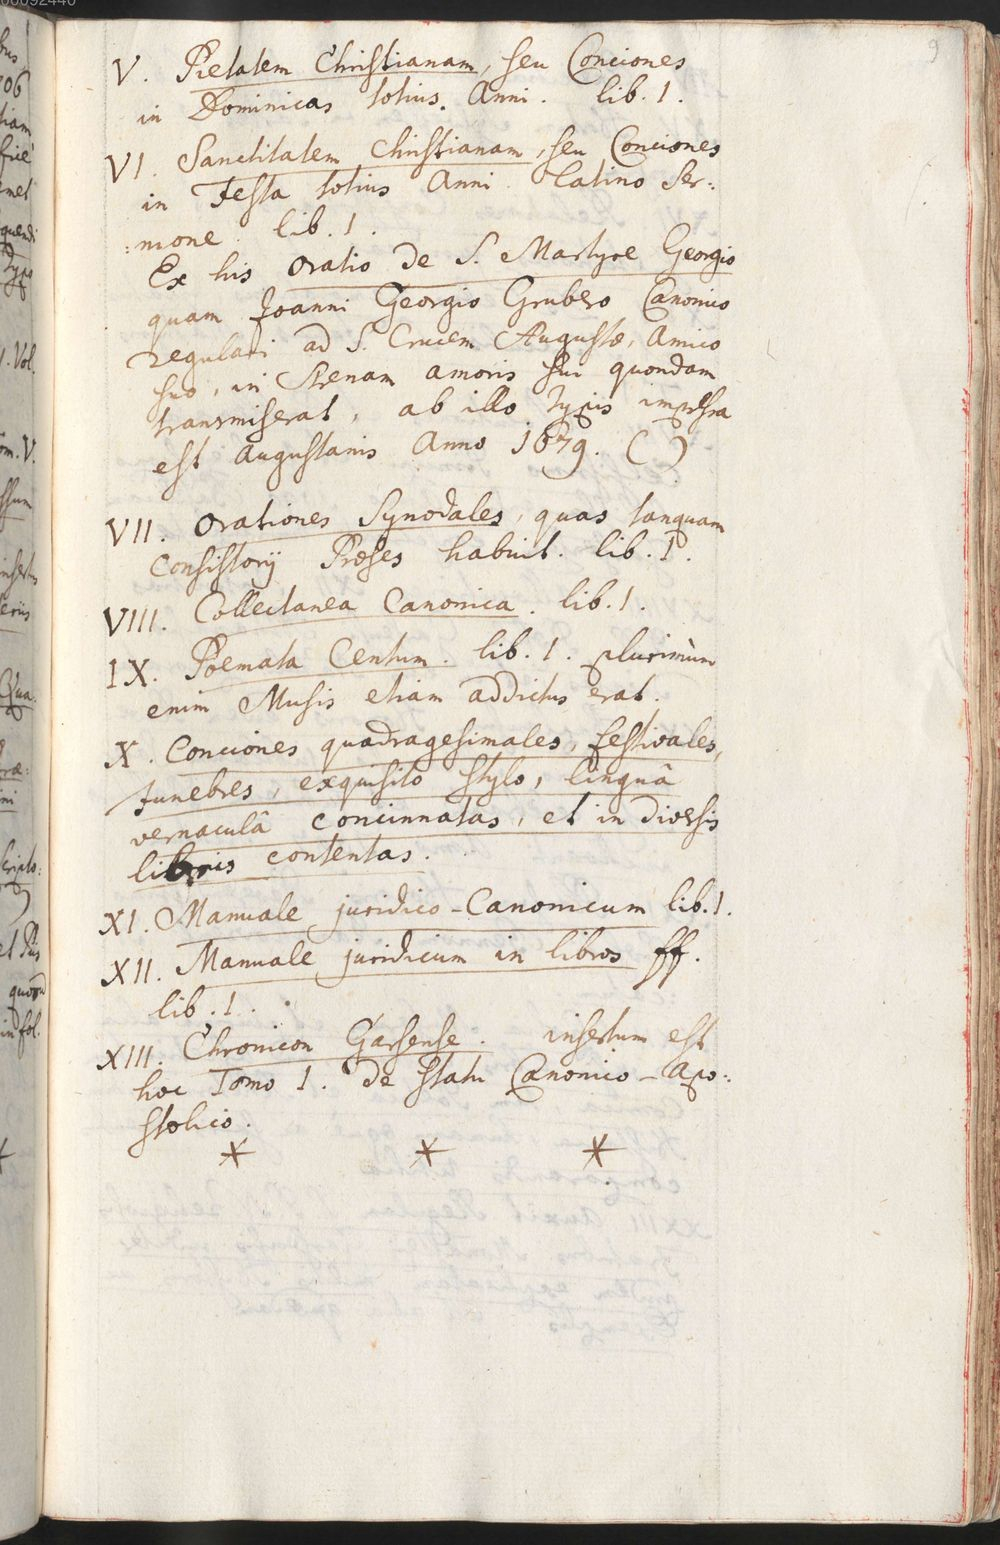 9
V. Pietatem Christianam, seu Conciones
in Dominicas totius Anni. lib. 1.
VI. Sanctitatem Christianam, seu Conciones
in Festa totius Anni. Latino Ser:
:mone. lib. 1.
Ex his Oratio de S. Martyre Georgio
quam Joanni Georgio Grubero Canonico
regulari ad S. Crucem Augustæ, Amico
suo, in Strenam amoris sui quondam
transmiserat, ab illo typis impressa
est Augustanis Anno 1679. ( )
VII. Orationes Synodales, quas tanquam
Consistorij Præses habuit. lib. 1.
VIII. Collectanea Canonica. lib. 1.
IX. Poemata Centum. lib. 1. plurimùm
enim Musis etiam addictus erat.
X. Conciones quadragesimales, festivales,
funebres, exquisito stylo, linguâ
vernaculâ concinnatas, et in diversis
libris contentas.
XI. Manuale juridico-Canonicum lib. 1.
XII. Manuale juridicum in libros ff.
lib. 1.
XIII. Chronicon Garsense. insertum est
hoc Tomo 1. de statu Canonico-Apo:
stolico.
* * *